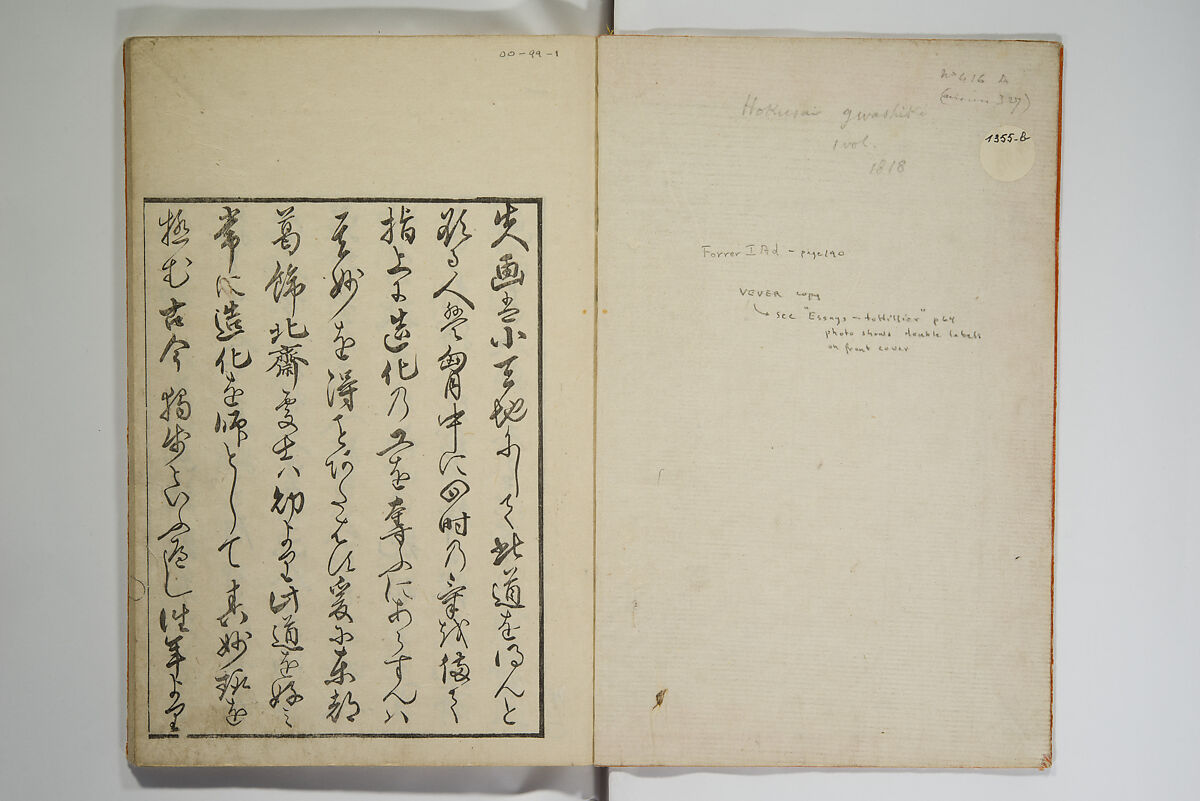 00-99-1
夫画は小天地にして此道を得んと
欲る人 胸中に四時の氣を備て
指上に造化の工を奪ふにあらすんハ
其妙を得ことあたはす爰に東都
葛飾北齋處士ハ幼より此道を好ミ
常に造化を師として其妙 を
極む古今獨歩といふ し往年より
Nº 616
Hokusai gwashiki
1 vol.
1818
1355-B
Forrer I Ad - page 190
VEVER copy
see "Essays - to Hillier" p 64
photo shows double labels
on front cover